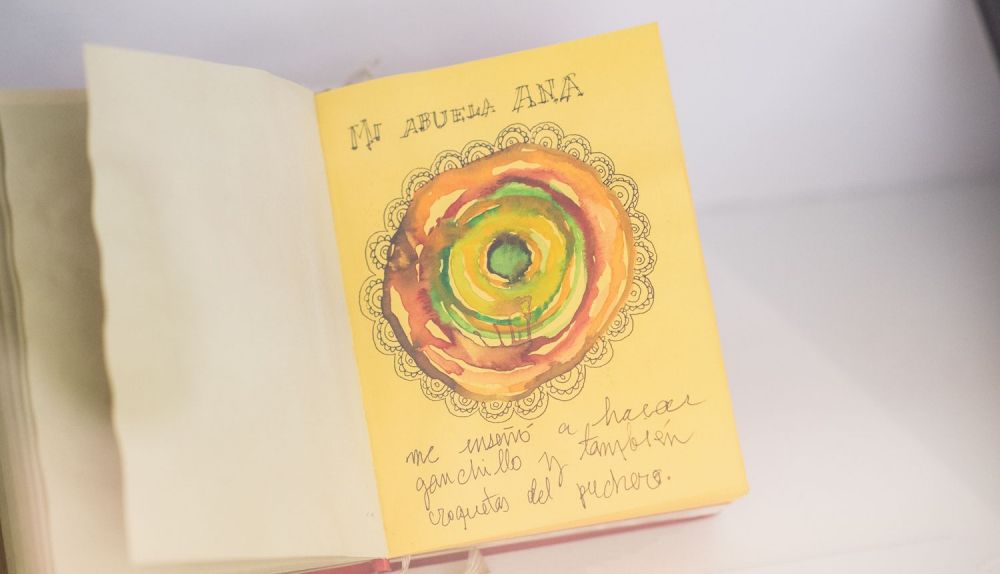 MI ABUELA ANA
me enseñó a hacer
ganchillo y también
croquetas del puchero.